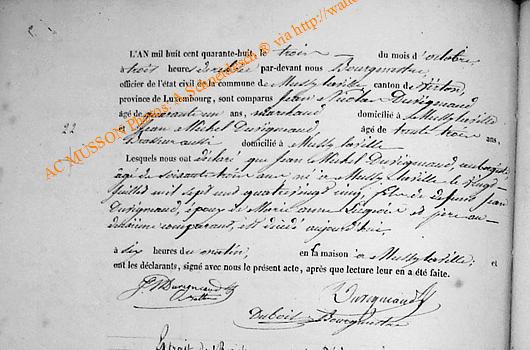 L'AN mil huit cent quarante-huit, le trois du mois d'octobre
à trois heures de relevée par-devant nous Bourgmestre
officier de l'état civil de la commune de Mussy la ville canton de Virton,
province de Luxembourg, sont comparus Jean Nicolas Durignaud,
âgé de quarante un ans, Marchand domicilié à Mussy la ville
22
et Jean Michel Durignaud, âgé de trente trois ans,
Brasseur aussi domicilié à Mussy la ville
Lesquels nous ont déclaré que Jean Michel Durignaud aubergiste
âgé de soixante trois ans né à Mussy la ville le vingt
juillet mil sept cent quatre vingt cinq, fils de défunt Jean
Durignaud, époux de Marie anne et père au
deuxième comparant, est décédé aujourd'hui
à six heures du matin, en sa maison à Mussy la ville; et
ont les déclarants, signé avec nous le présent acte, après que lecture leur en a été faite.
Durignaud
Durignaud
Dubois Bourgmestre
AC MUSSON Photos: A.Schneidesch © via http://